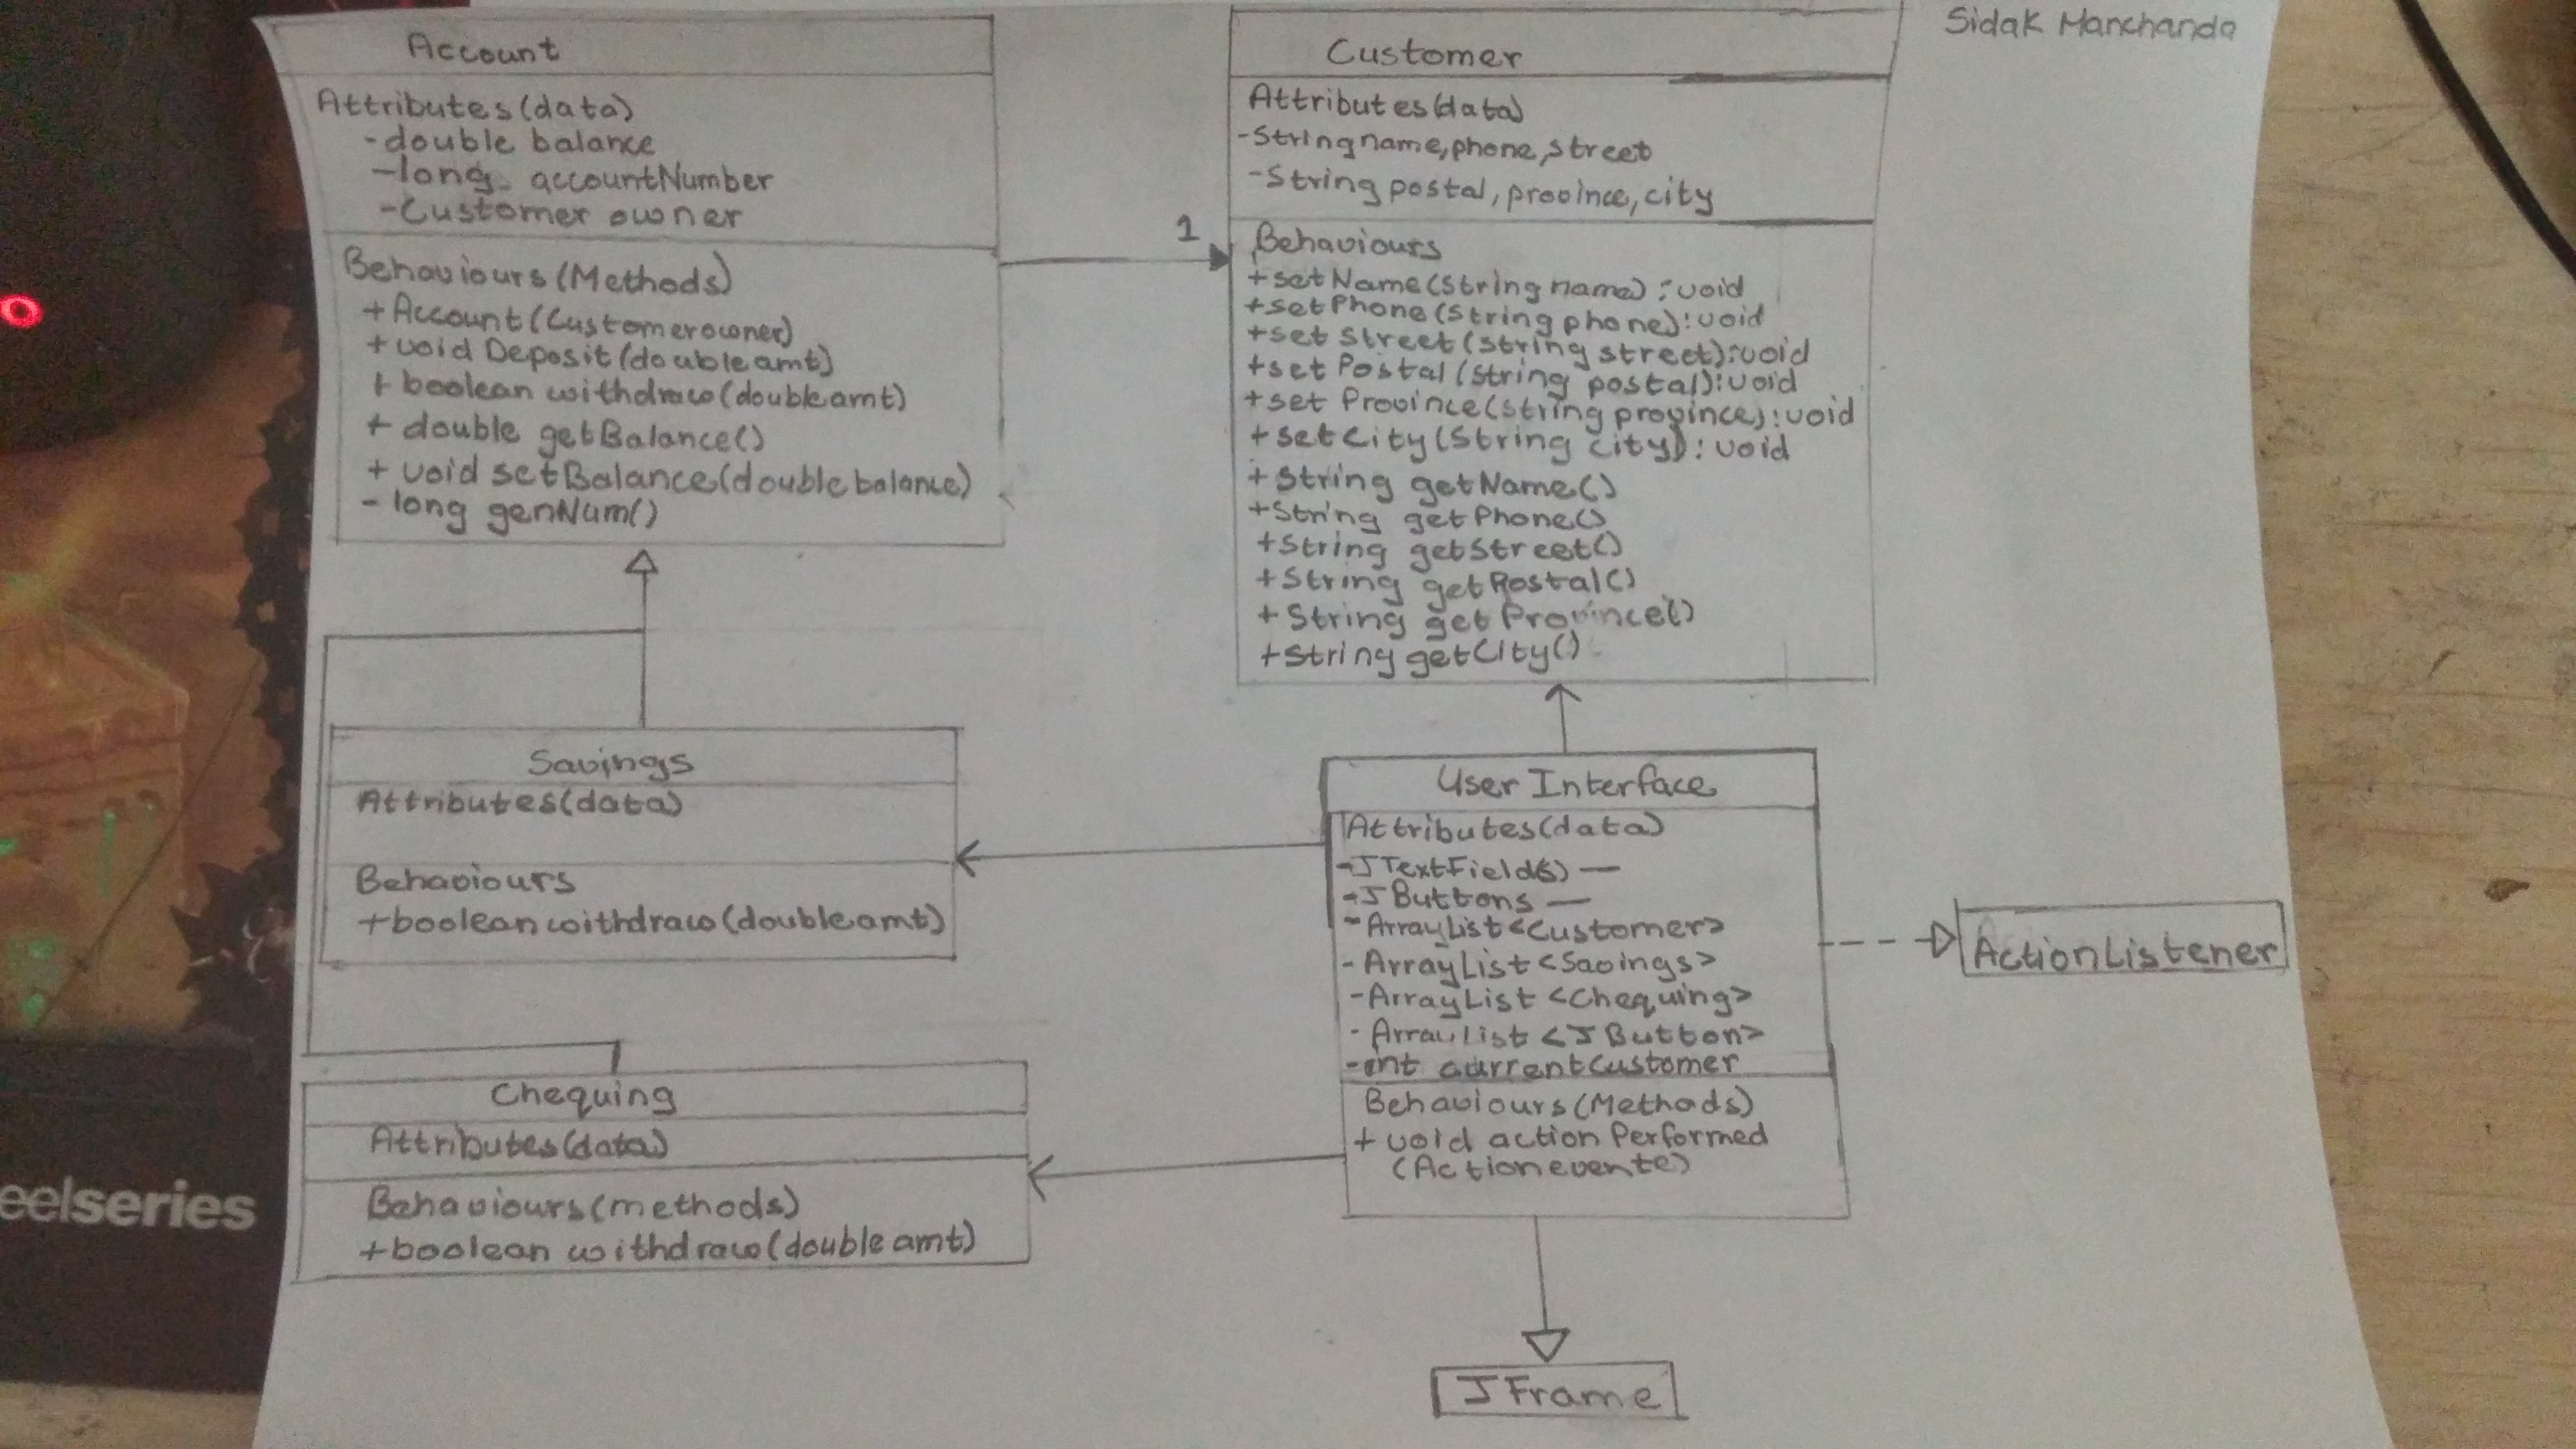 Sidak Manchanda
Account
Attributes(data)
-double balance
-long accountNumber
-Customer owner
Behaviours(Methods)
+Account(Customer owner)
+void Deposit(double amt)
+ boolean withdraw(double amt)
+ double getBalance()
+ void setBalance(double balance)
- long genNum()
1
Customer
Attributes(data)
-String name,phone,street
-String postal, province, city
Behaviours
+setName(String name):void
+setPhone(String phone):void
+set Street(String street):void
+set Postal(String postal):void
+set Province(String province):void
+setCity(String city):void
+String getName()
+String getPhone()
+String getStreet()
+String getPostal()
+ String getProvince()
+String getCity()
Savings
Attributes(data)
Behaviours
+boolean withdraw(double amt)
User Interface
Attributes(data)
-JTextField(s) —
-JButtons —
-ArrayList<Customer>
- ArrayList<Savings>
-ArrayList <Chequing>
- ArrayList <JButton>
-int currentCustomer
Behaviours(Methods)
+ void action Performed
(Actionevente)
ActionListener
Chequing
Attributes(data)
Behaviours(methods)
+boolean withdraw(double amt)
JFrame
eelseries